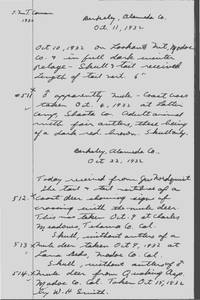 Berkeley, Alameda Co.
Oct. 11, 1932
Oct. 10, 1932 on Lookout Mt., Modoc
Co. & in full dark winter
pelage - Skull & tail received
Length of tail vert. 6"
#511 ♂ apparently mule - Coast cross
taken Oct. 6, 1932 at
Shasta Co. Adult animal
with four antlers, these being
of a dark red brown. Skull only.
Berkeley, Alameda Co.
Oct. 22, 1932
Today received from
the tail & tail vertebrae of a
512. Coast deer showing signs of
crossing with the mule deer
This was taken Oct. 9 at Charles
Meadows, Tehama Co. Cal.
Skull, without antlers of a
513 mule deer taken Oct. 9, 1932 at
Lava Beds, Modoc Co. Cal.
Skull, without antlers of a
514 mule deer from
Modoc Co. Cal. Taken Oct. 15, 1932
by W. H. Smith.